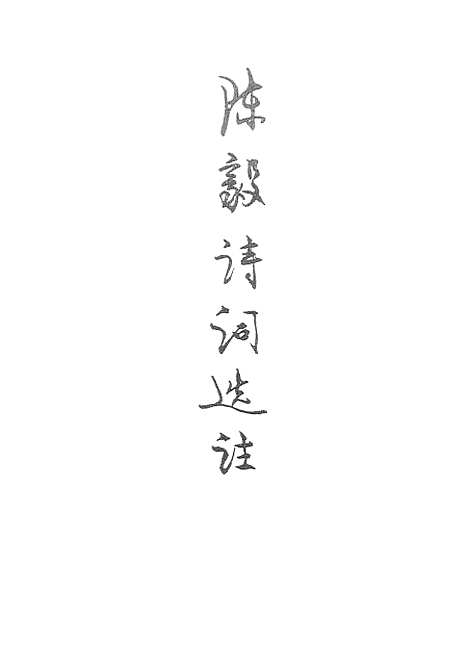 陈毅诗词选註